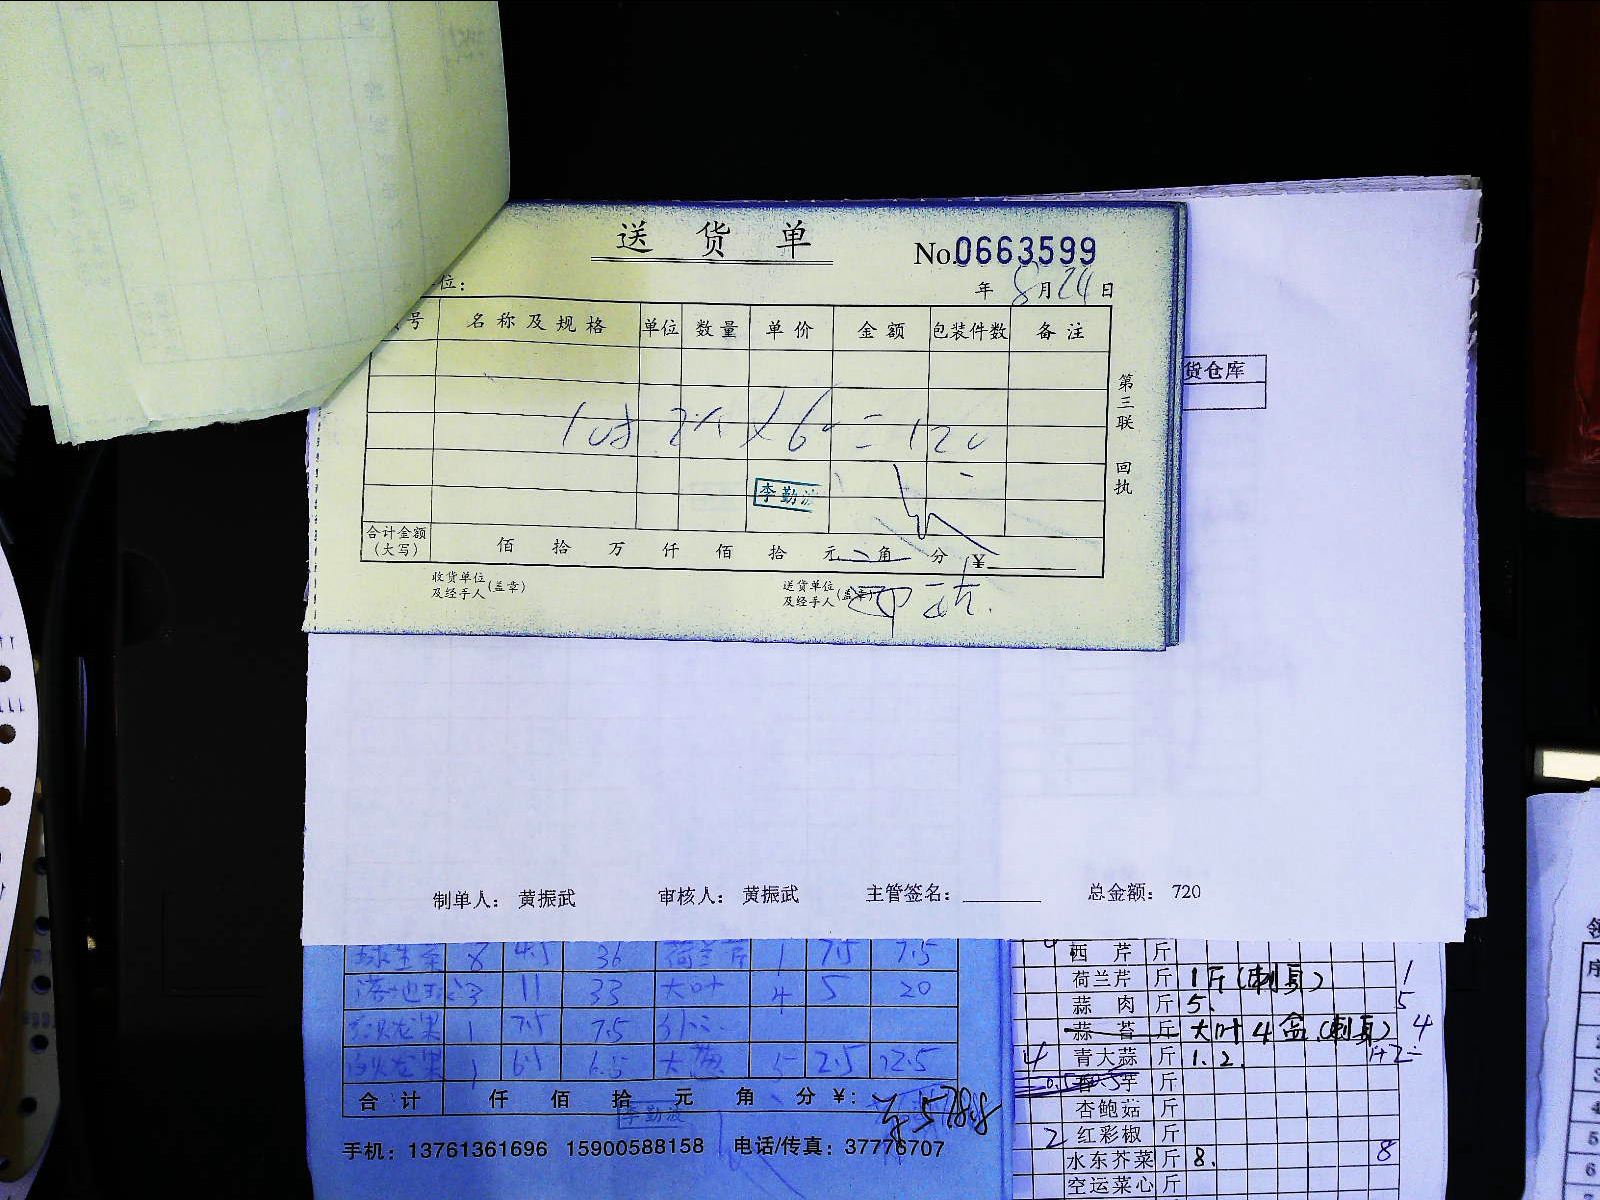 送货单
No.0663599
位：
年 8月24日
号 名称及规格 单位 数量 单价 金额 包装件数 备注
2个×60=120
李勤波
第三联 回执
合计金额（大写） 佰 拾 万 仟 佰 拾 元 角 分 ¥
收货单位及经手人（盖章） 送货单位及经手人（盖章）
货仓库
制单人： 黄振武 审核人： 黄振武 主管签名： 总金额： 720
球生菜 8 4.5 36 荷兰芹 1 7.5 7.5
3 11 33 大叶 4 5 20
1 7.5 7.5
1 6.5 6.5 大葱 5 2.5 12.5
合计 仟 佰 拾 元 角 分 ¥：
李勤波
手机：13761361696 15900588158 电话/传真：37776707
西芹 斤
荷兰芹 斤 1斤(刺身) 1
蒜肉 斤 5. 5
蒜苔 斤 大叶4盒(刺身) 4
4 青大蒜 斤 1.2. 1+2=
香芋 斤
杏鲍菇 斤
2 红彩椒 斤
水东芥菜 斤 8. 8
空运菜心 斤